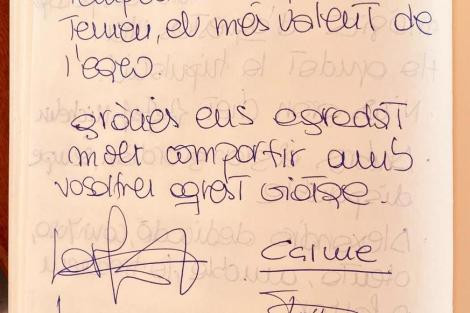 Temeu, el més valent de
l'egeu.
gràcies ens agradat
molt compartir amb
vosaltres aqest viatge.
Carme